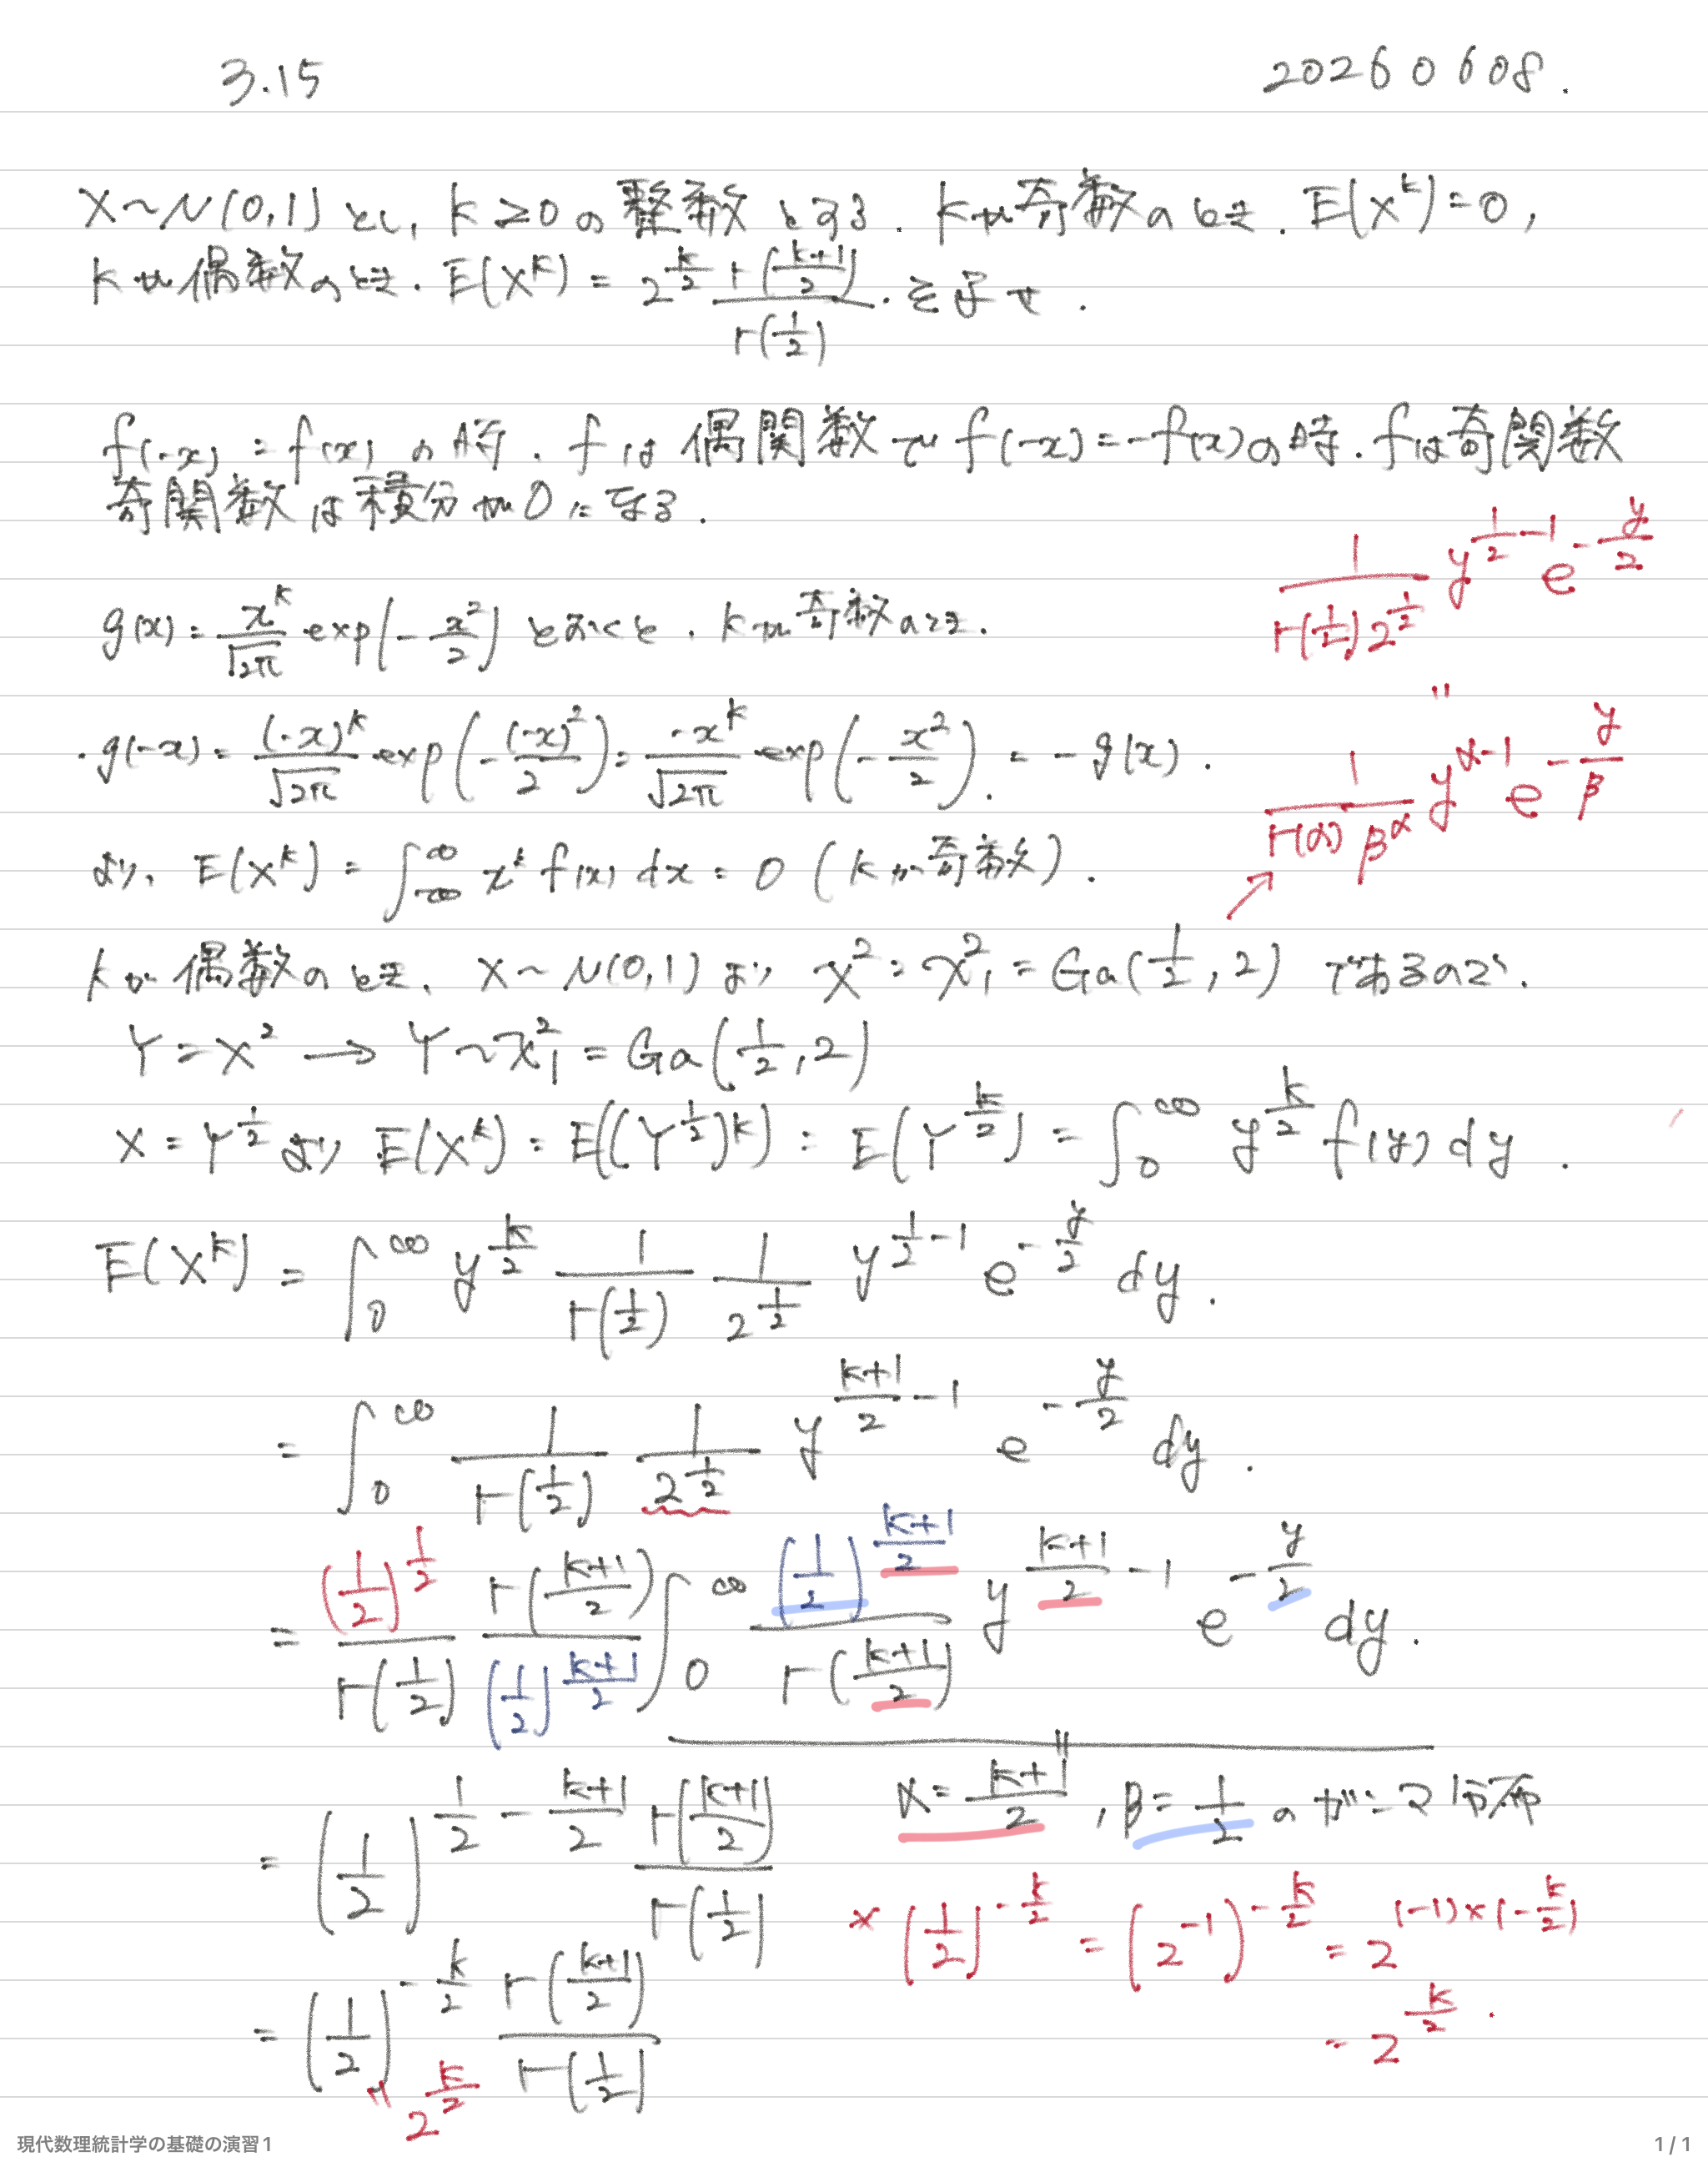 3.15
20260608.
X～N(0,1)とし、k≥0の整数とする. kが奇数のとき. E(X^k)=0,
kが偶数のとき. E(X^k) = 2^{k/2} Γ((k+1)/2)/Γ(1/2). を示せ.
f(-x) = f(x) の時. fは偶関数で f(-x)=-f(x)の時. fは奇関数
奇関数は積分が0になる.
g(x) = x^k/√2π exp(-x²/2) とおくと. kが奇数のとき.
・g(-x) = (-x)^k/√2π exp(-(-x)²/2) = -x^k/√2π exp(-x²/2). = -g(x).
より、E(X^k) = ∫_{-∞}^{∞} x^k f(x) dx = 0 (kが奇数).
1/(Γ(1/2)2^{1/2}) y^{1/2-1} e^{-y/2}
"
1/(Γ(α)β^α) y^{α-1} e^{-y/β}
↗
kが偶数のとき、X～N(0,1)より X² = χ²₁ = Ga(1/2, 2) であるので.
Y=X² → Y～χ²₁ = Ga(1/2, 2)
X = Y^{1/2} より E(X^k) = E((Y^{1/2})^k) = E(Y^{k/2}) = ∫_0^∞ y^{k/2} f(y) dy.
E(X^k) = ∫_0^∞ y^{k/2} 1/Γ(1/2) 1/2^{1/2} y^{1/2-1} e^{-y/2} dy.
= ∫_0^∞ 1/Γ(1/2) 1/2^{1/2} y^{(k+1)/2-1} e^{-y/2} dy.
= (1/2)^{1/2}/Γ(1/2) Γ((k+1)/2)/(1/2)^{(k+1)/2} ∫_0^∞ (1/2)^{(k+1)/2}/Γ((k+1)/2) y^{(k+1)/2-1} e^{-y/2} dy.
α=(k+1)/2, β=1/2 のガンマ分布
= (1/2)^{1/2-(k+1)/2} Γ((k+1)/2)/Γ(1/2)
× (1/2)^{-k/2} = (2^{-1})^{-k/2} = 2^{(-1)×(-k/2)}
= 2^{k/2}.
= (1/2)^{-k/2} Γ((k+1)/2)/Γ(1/2)
" 2^{k/2}
現代数理統計学の基礎の演習1
1 / 1